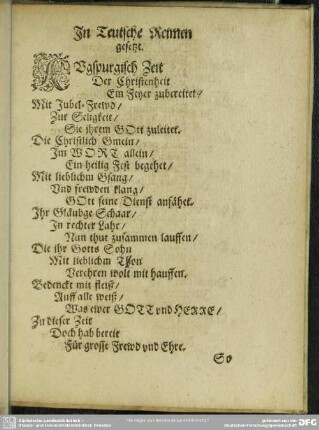 In Teutsche Reimen
gesetzt.
AVgspurgisch Zeit
Der Christenheit
Ein Feyer zubereitet/
Mit Jubel-Frewd/
Zur Seligkeit/
Sie ihrem GOtt zuleitet.
Die Christlich Gmein/
Im WORT allein/
Ein heilig Fest begehet/
Mit lieblichm Gsang/
Vnd frewden klang/
GOtt seine Dienst anfähet.
Ihr Glaubge Schaar/
In rechter Lahr/
Nun thut zusammen lauffen/
Die ihr Gotts Sohn
Mit lieblichm Thon
Verehren wolt mit hauffen.
Bedenckt mit fleiß/
Auff alle weiß/
Was ewer GOTT vnd HERRE/
Zu dieser Zeit
Doch hab bereit
Für grosse Frewd vnd Ehre.
So
DFG